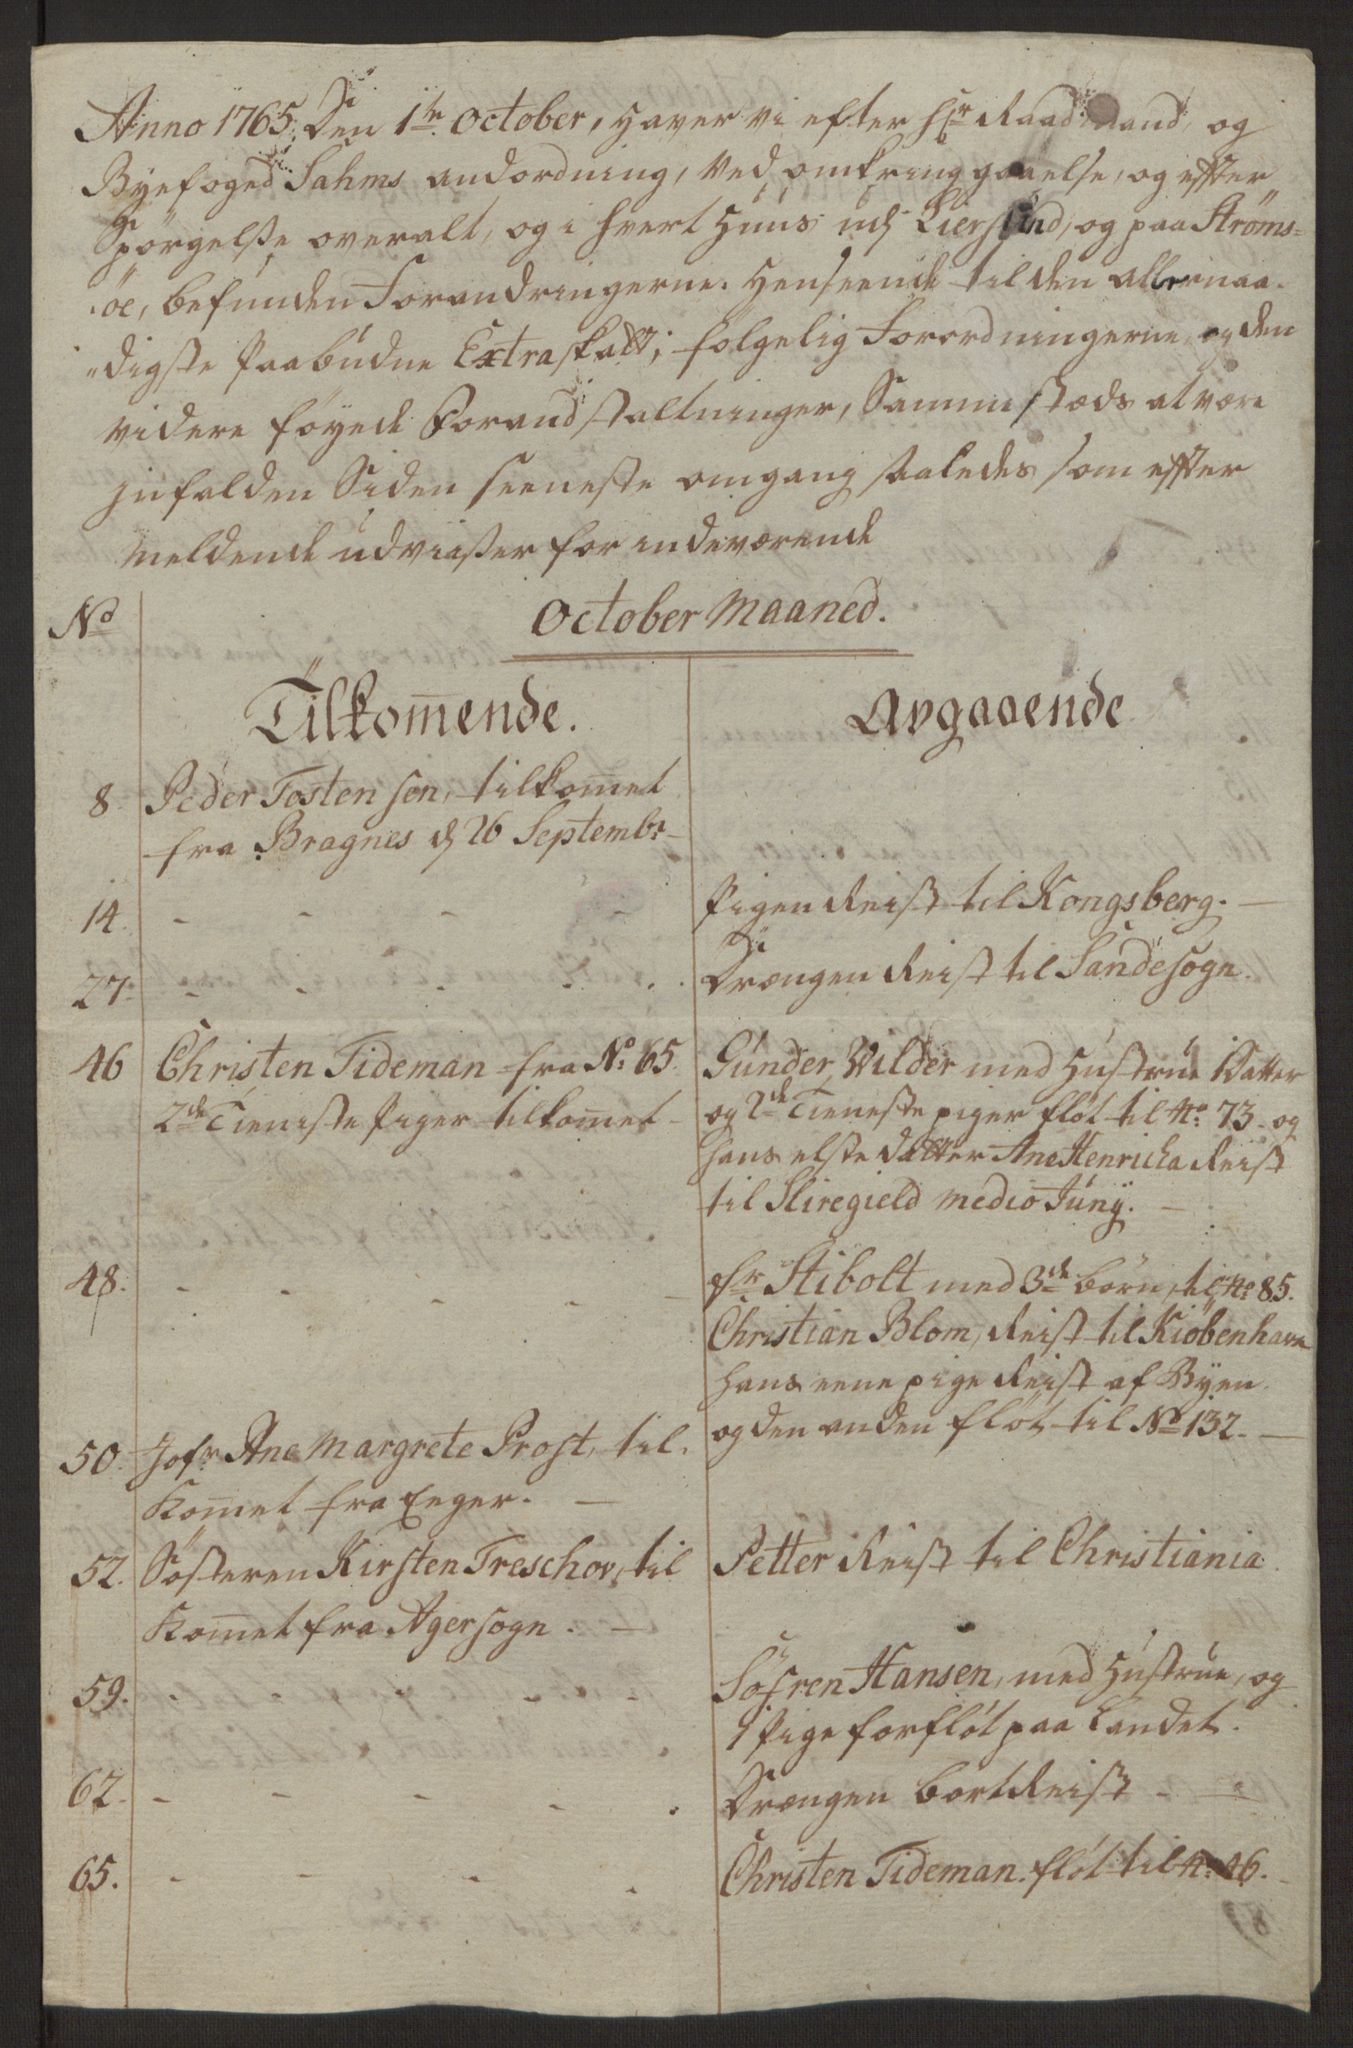 Anno 1765. Den 1te October, haver vi efter Hr Raadmand og
Byefoged Sahms andordning, ved omkringgaaelse, og effter
Spörgelse overalt, og i hvert Huus udj Liersund, og paa Ströms=
öe, befunden Forandringerne, henseende til den allernaa-
digste Paabudne Extraskatt, fölgelig Forordningerne, og den
videre föyede Forandstaltninger, Sammestæds at være
jnfalden Siden seeneste omgang saaledes som effter
meldende udviisser for indeværende
No
October Maaned.
Tilkom̅ende.
Avgaaende
8. Peder Tostensen, tilkom̅et
fra Bragnes d 26 Septembr
14. - - - - Pigen Reist til Kongsberg. -
27. - - - - Drængen Reist til Sandesogn.
46 Christen Tideman fra No: 65.
2de Tieniste Piger tilkom̅et -
Gunder Wilder med Hustrue Datter
og 2de Tieneste piger flöt til No: 73 og
hans elste Datter Ane Henricha Reist
til Sliregield medio Junÿ. -
48. - - - - fr Stibolt med 3de börn, til No: 85.
Christian Blom, Reist til Kiöbenhavn
hans eene pige Reist af Byen
og den anden flöt til No 132. -
50. Jofr Ane Margrete Prost, til-
kom̅et fra Eger. -
52. Sösteren Kirsten Treschov, til
kom̅et fra Agersogn. -
Petter Reist til Christiania.
59. - - - - Söfren Hansen, med Hustrue, og
1 Pige forflöt paa Landet.
62. - - - - Drængen bortReist -
65. - - - - Christen Tideman flöt til No: 46.